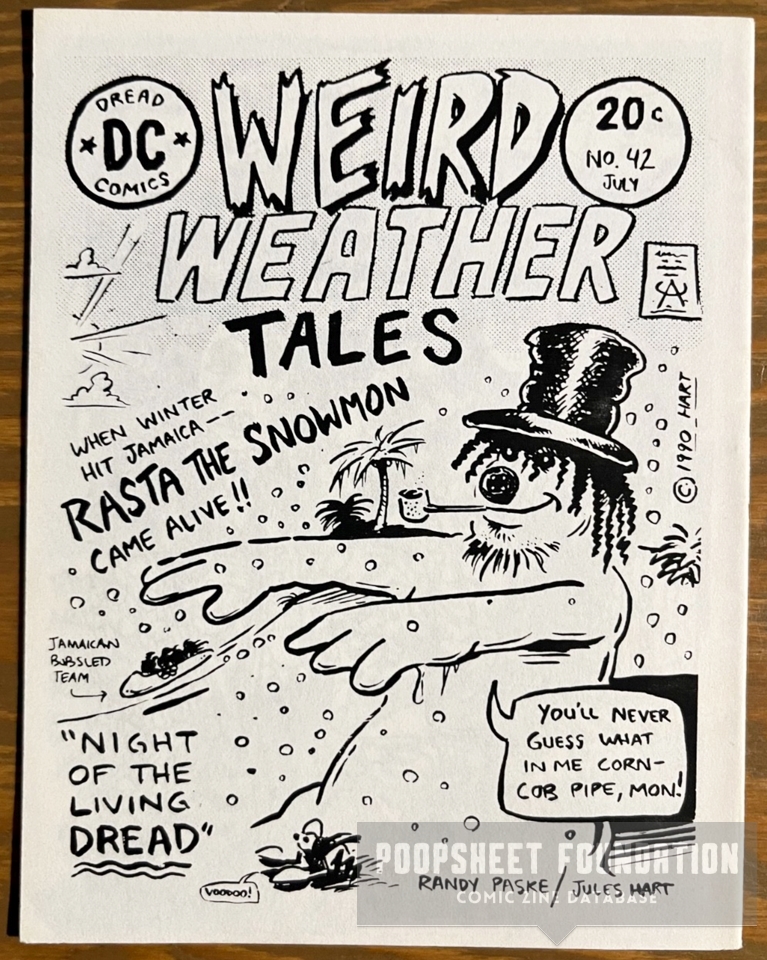 DREAD
DC
COMICS
WEIRD
20c
NO. 42
JULY
WEATHER
TALES
WHEN WINTER
HIT JAMAICA--
RASTA THE SNOWMON
CAME ALIVE!!
© 1990 HART
JAMAICAN
BOBSLED
TEAM
"NIGHT
OF THE
LIVING
DREAD"
YOU'LL NEVER
GUESS WHAT
IN ME CORN-
COB PIPE, MON!
VOODOO!
RANDY PASKE / JULES HART
POOPSHEET FOUNDATION
COMIC ZINE DATABASE